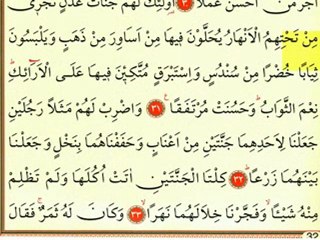 اَجْرَ مَنْ اَحْسَنَ عَمَلاً ﴿٣٠﴾ اُولٰٓئِكَ لَهُمْ جَنَّاتُ عَدْنٍ تَجْر۪ي
مِنْ تَحْتِهِمُ الْاَنْهَارُ يُحَلَّوْنَ ف۪يهَا مِنْ اَسَاوِرَ مِنْ ذَهَبٍ وَيَلْبَسُونَ
ثِيَاباً خُضْراً مِنْ سُنْدُسٍ وَاِسْتَبْرَقٍ مُتَّكِـ۪ٔينَ ف۪يهَا عَلَى الْاَرَٓائِكِۜ
نِعْمَ الثَّوَابُۜ وَحَسُنَتْ مُرْتَفَقاً۟ ﴿٣١﴾ وَاضْرِبْ لَهُمْ مَثَلاً رَجُلَيْنِ
جَعَلْنَا لِاَحَدِهِمَا جَنَّتَيْنِ مِنْ اَعْنَابٍ وَحَفَفْنَاهُمَا بِنَخْلٍ وَجَعَلْنَا
بَيْنَهُمَا زَرْعاًۜ ﴿٣٢﴾ كِلْتَا الْجَنَّتَيْنِ اٰتَتْ اُكُلَهَا وَلَمْ تَظْلِمْ
مِنْهُ شَيْـٔاًۙ وَفَجَّرْنَا خِلَالَهُمَا نَهَراًۙ ﴿٣٣﴾ وَكَانَ لَهُ ثَمَرٌۚ فَقَالَ